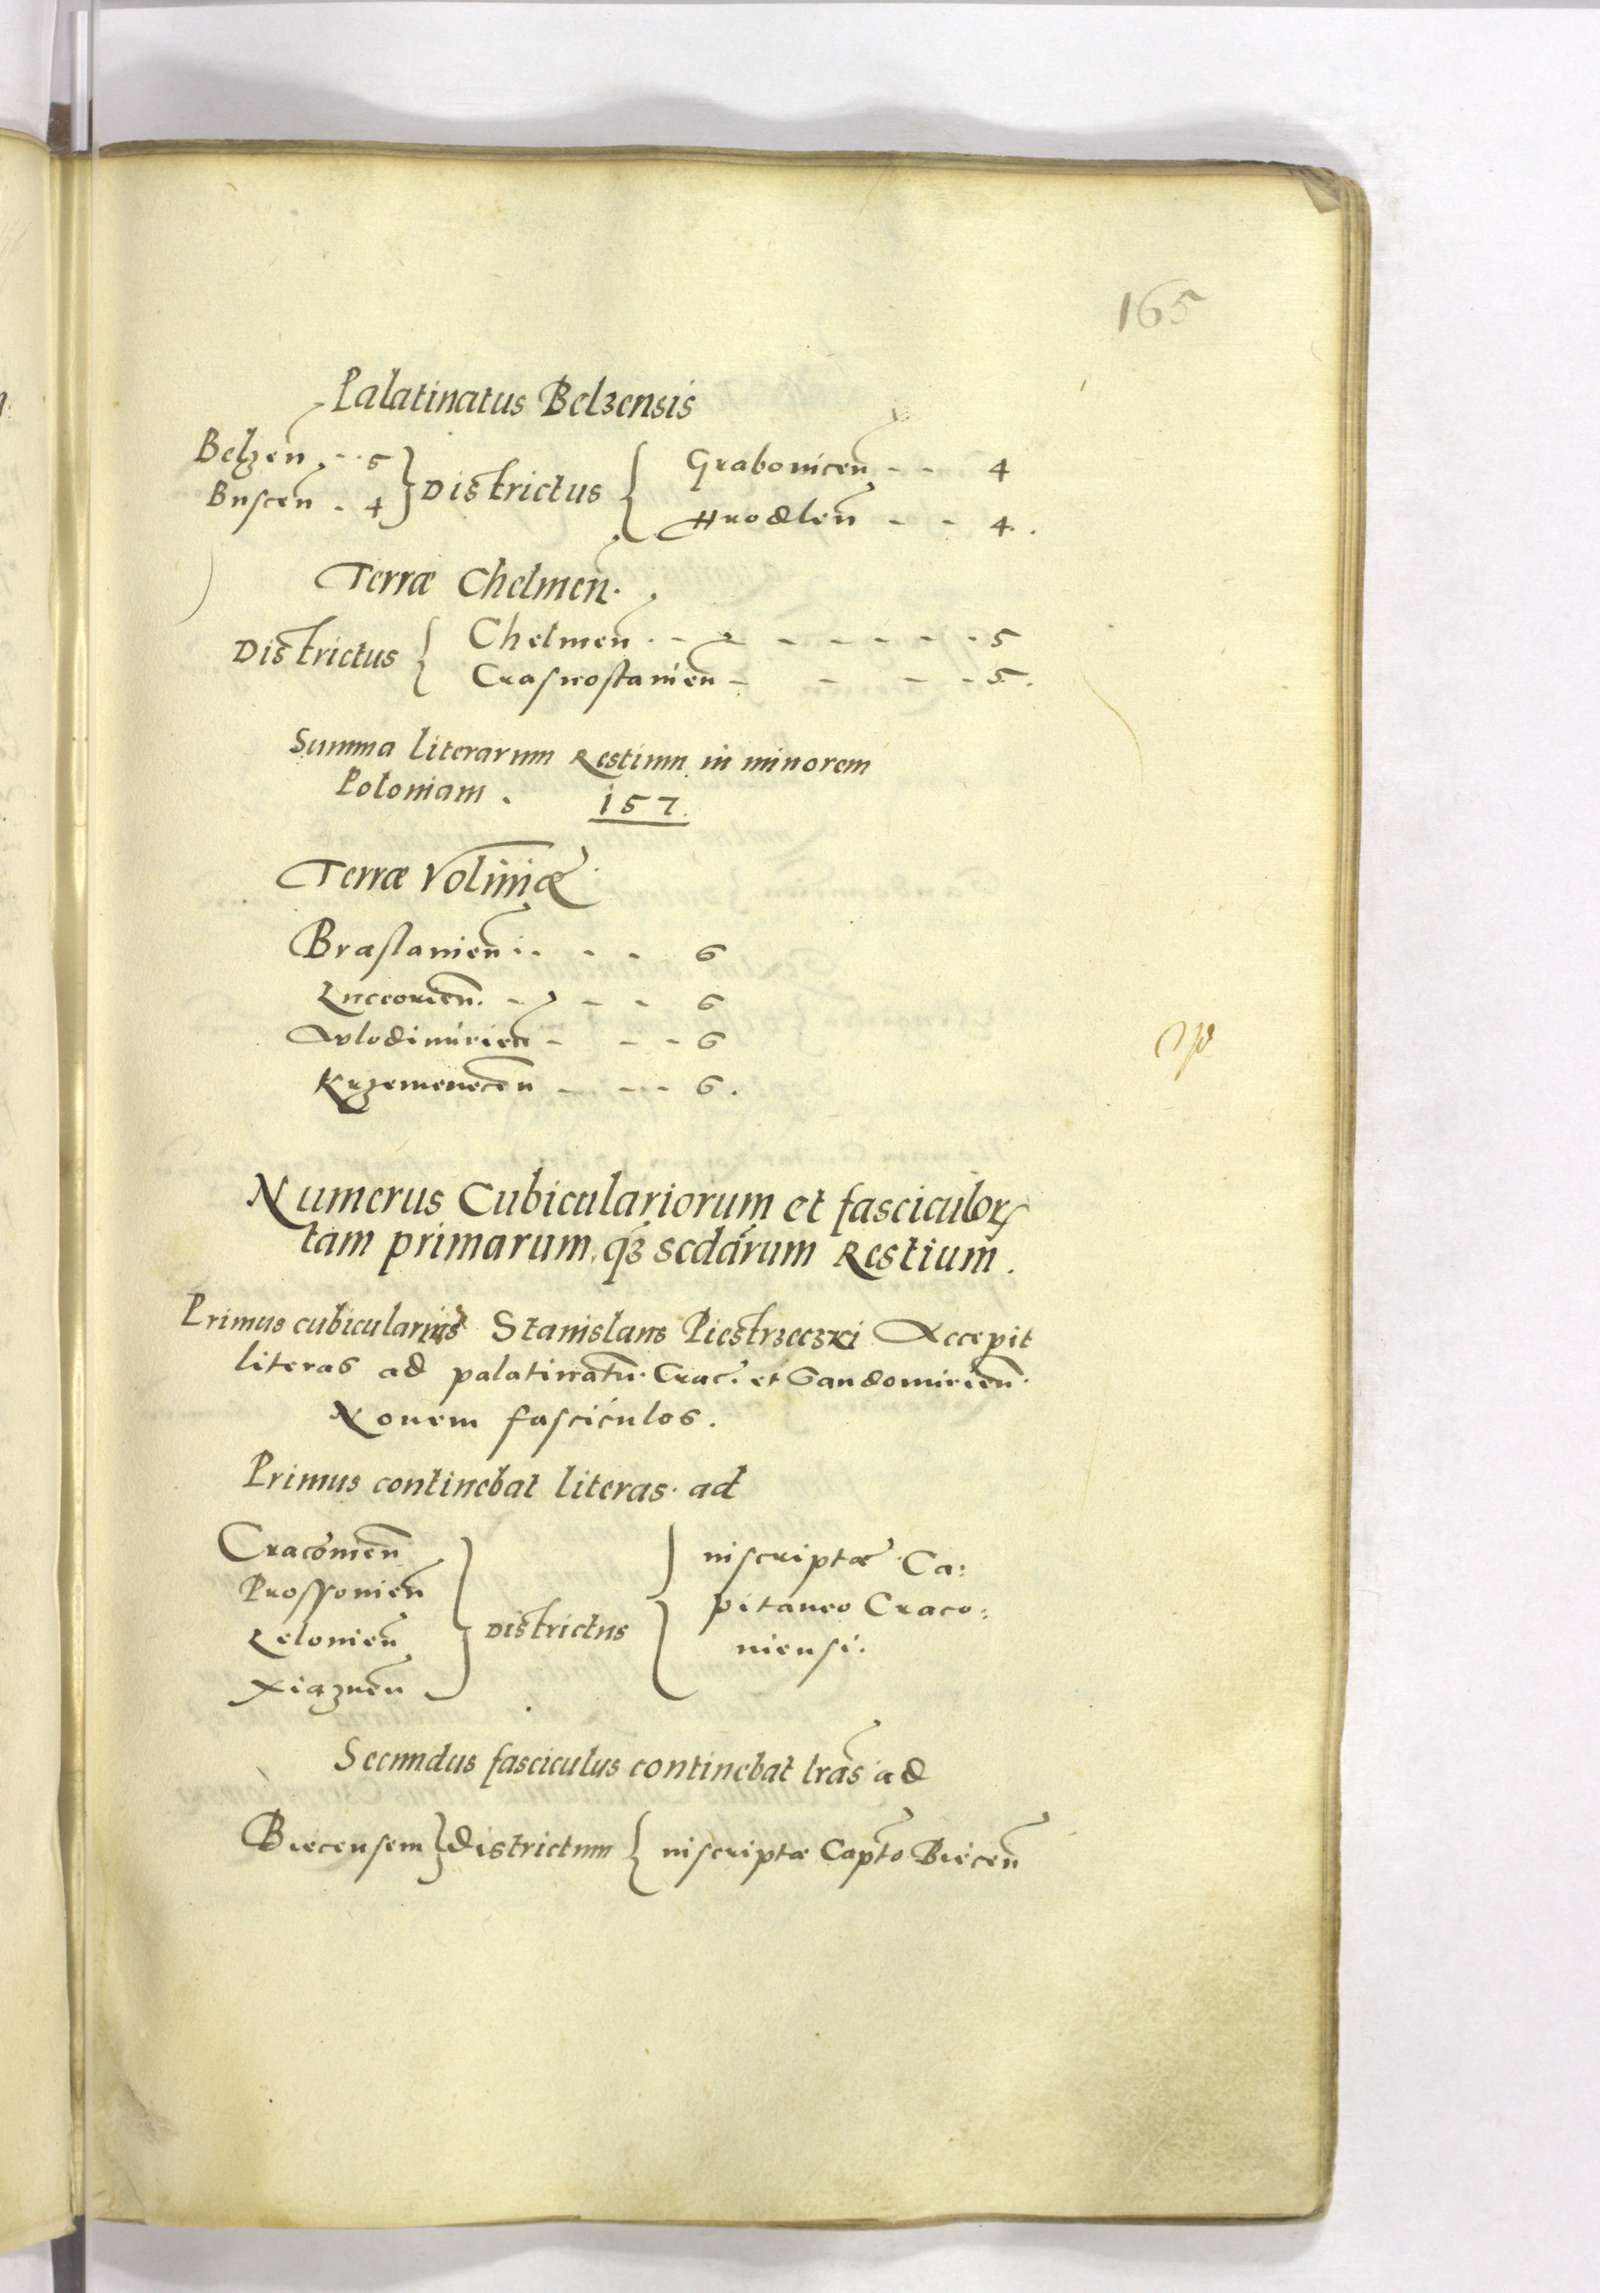 165
Palatinatus Belzensis
Belzen̄ . - . 5 } Districtus { Graboviceñ - - 4
Buscen̄ . 4 Hrodlen̄ - - 4.
Terræ Chelmen̄.
Districtus { Chelmen̄ . - - - - - - - 5
Crasnostavien̄ - - - - 5.
Summa literarum Restium in minorem
Poloniam . 157.
Terræ Voliniæ
Braslavien̄ . . - - - 6
Luceorien̄. - - - - 6
Wlodimirien̄ - - - 6
Krzemenecen̄ - - - - 6.
Numerus Cubiculariorum et fasciculorꝝ
tam primarum, qꝫ secdārum Restium.
Primus cubicularius Stanislaus Piestrzeczki Accepit
literas ad palatinatū. Crac. et Sandomirien̄.
Novem fasciculos.
Primus continebat literas. ad
Cracovien̄ } Districtus { inscriptæ Ca:
Prossovien̄ pitaneo Craco:
Lelovien̄ viensi.
Xiąznen̄
Secundus fasciculus continebat lrās ad
Biecensem } districtum { inscriptæ Capto Biecen̄